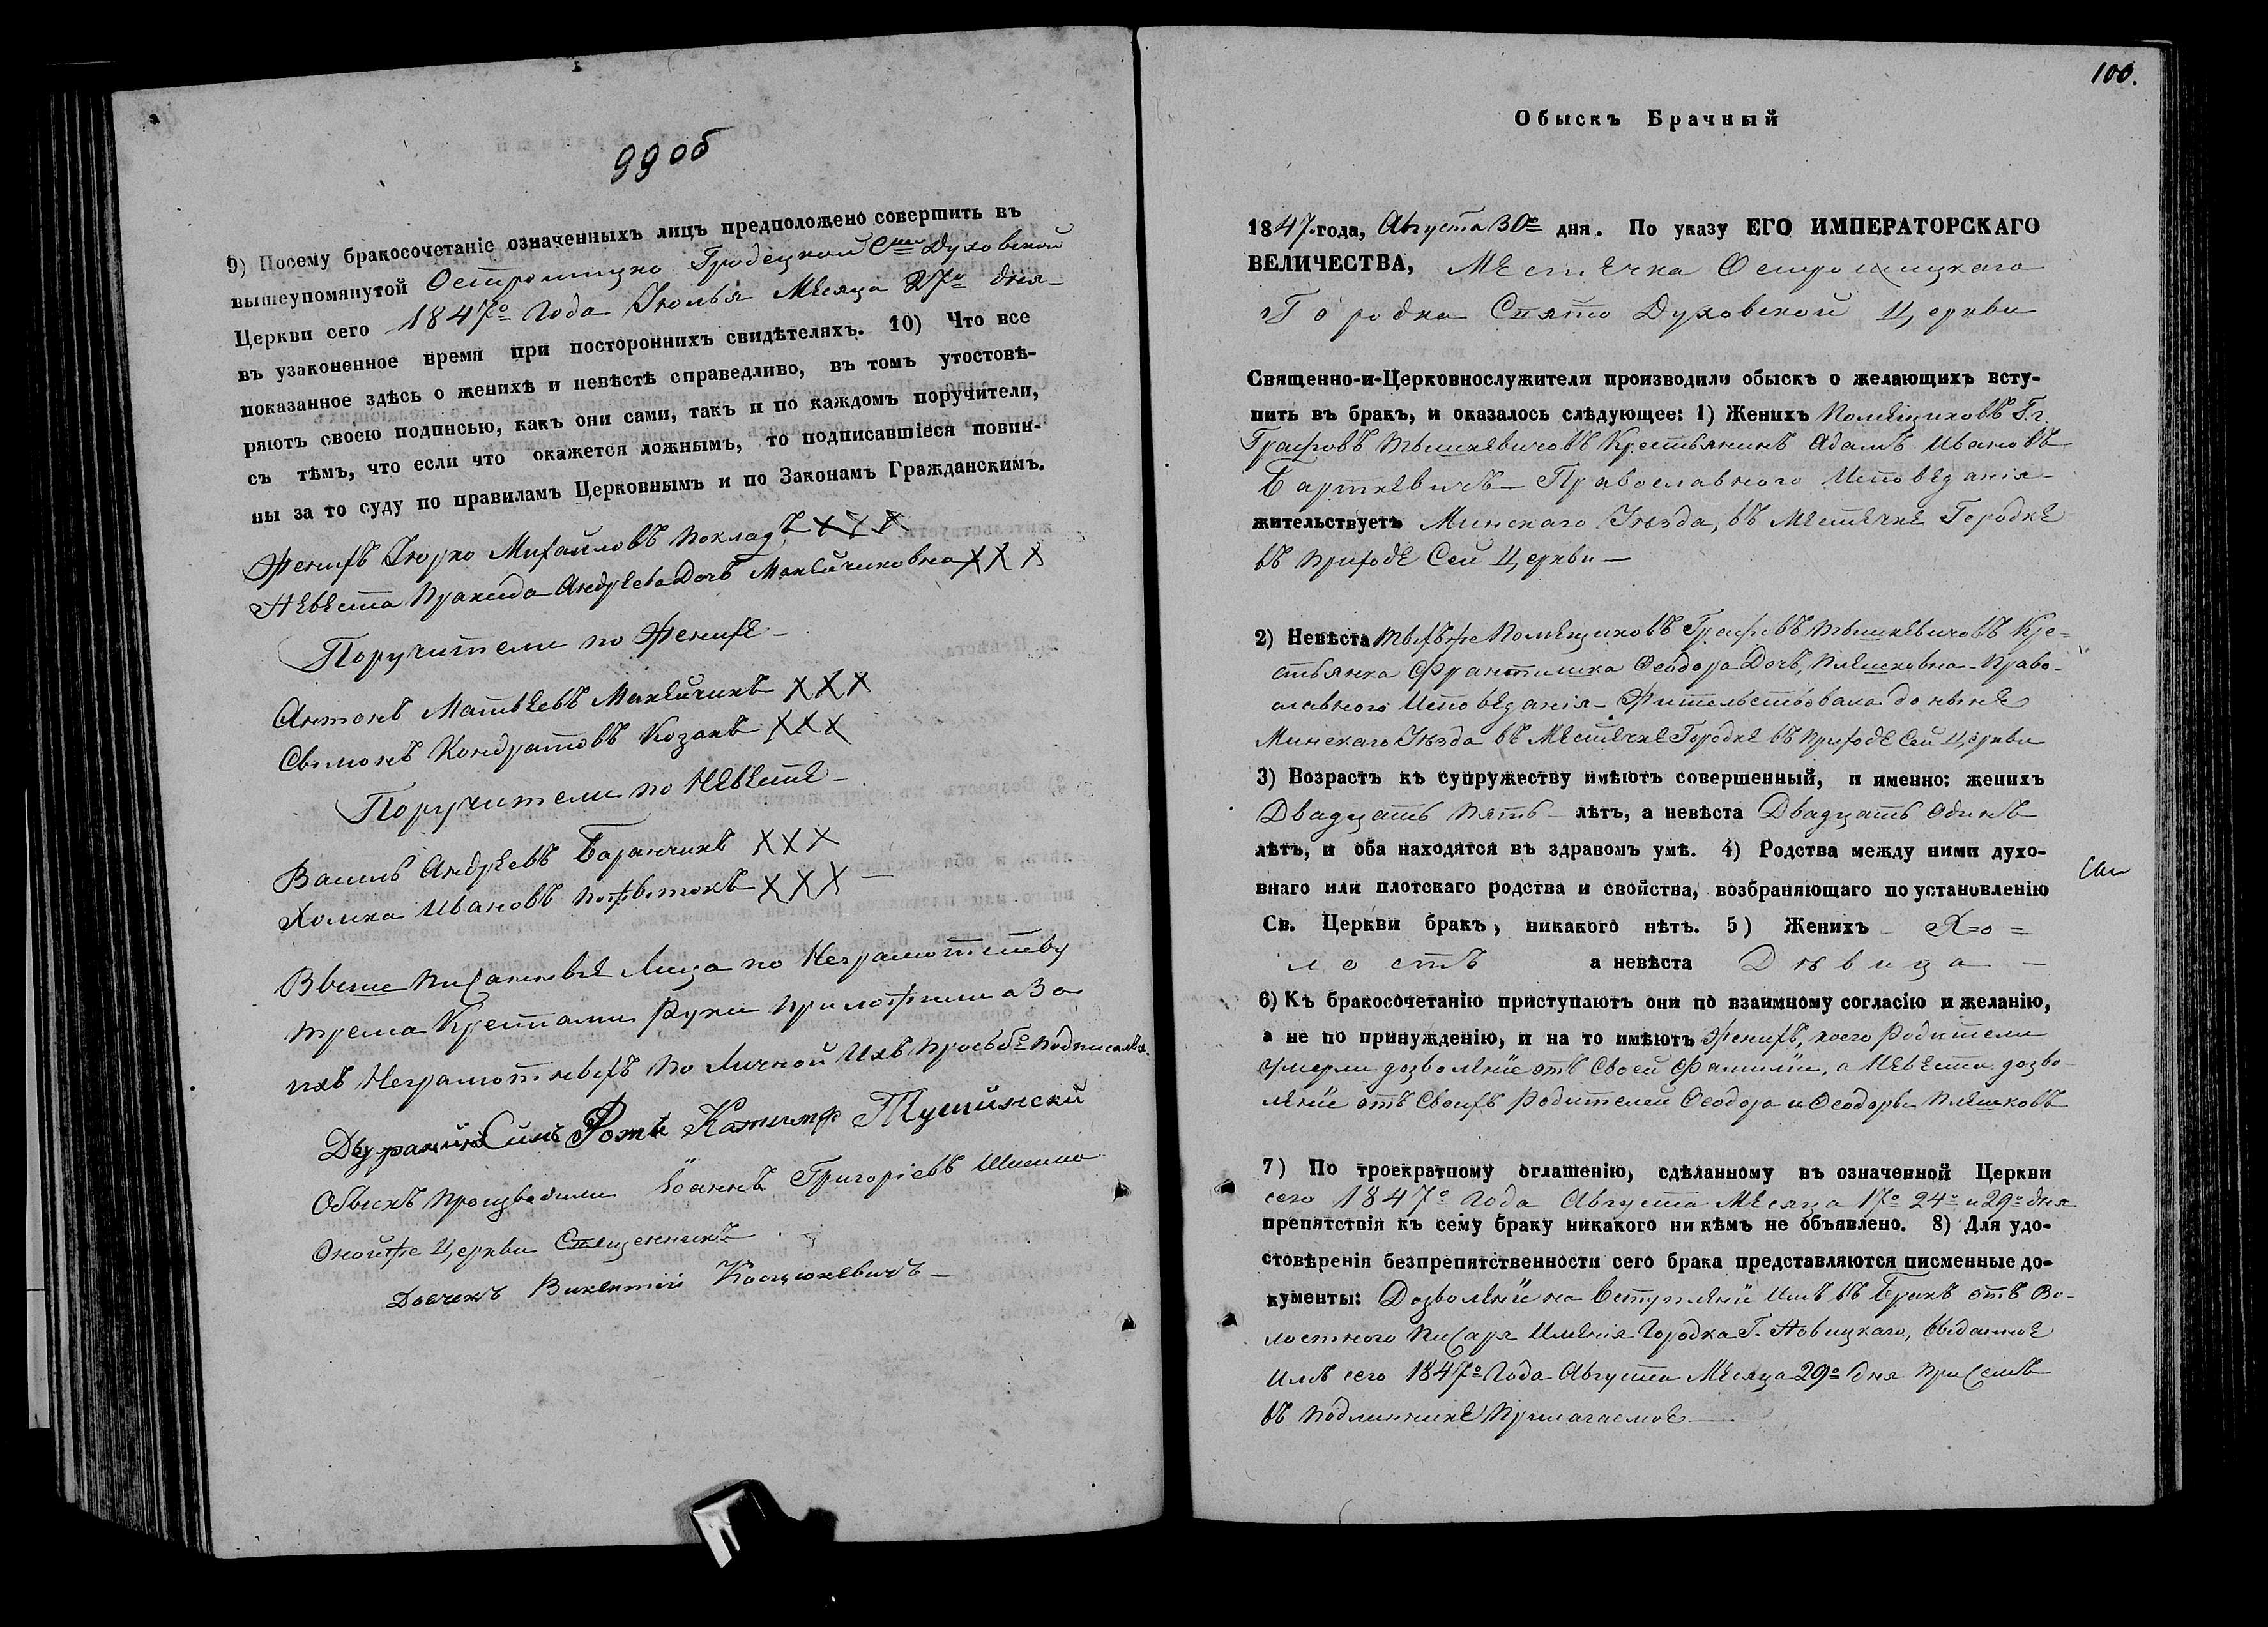 99 об
9) Посему бракосочетаніе означенныхъ лицъ предположено совершить въ
вышеупомянутой Острошицко Гродецкой Духовской
Церкви сего 1847го Года Іюлья Месяца 27го дня
въ узаконенное время при постороннихъ свидѣтеляхъ. 10) Что все
показанное здѣсь о женихѣ и невѣстѣ справедливо, въ томъ утостовѣ-
ряютъ своею подписью, какъ они сами, такъ и по каждомъ поручители,
съ тѣмъ, что если что окажется ложнымъ, то подписавшіеся повин-
ны за то суду по правиламъ Церковнымъ и по Законамъ Гражданскимъ.
Женихъ Іюрко Михайловъ Покладъ XXX
Невеста Пракседа Андреева Дочь XXX
Поручители по Женихе
Антонъ Матвеевъ Макейчикъ XXX
Свимонъ Кондратовъ Козакъ XXX
Поручители по Невесте
Василь Андреевъ Баранчикъ XXX
Хомка Ивановъ XXX
Выше писанные Лица по Неграмотству
трема Крестами Руки приложили а За
ихъ Неграмотныхъ по Личной Ихъ просьбе подписался.
Сынъ Тушински
Обыскъ Производили Іоаннъ Григоріевъ
Онойже Церкви Священникъ
Дьячекъ Викентій Костюкевичъ
100.
Обыскъ Брачный
1847 года, Августа 30го дня. По указу ЕГО ИМПЕРАТОРСКАГО
ВЕЛИЧЕСТВА, Местечка Острошицкаго
Городка Свято Духовской Церкви
Священно-и-Церковнослужители производили обыскъ о желающихъ всту-
пить въ бракъ, и оказалось слѣдующее: 1) Женихъ Помещиковъ Г.г.
Графовъ Тышкевичовъ Крестьянинъ Адамъ Ивановъ
Барткевичъ Православного Исповеданія
жительствуетъ Минскаго Уезда, въ Местечке Городке
въ приходе Сей Церкви
2) Невѣста тыхъже Помещиковъ Графовъ Тышкевичовъ Кре=
стьянка Франтишка Ѳеодора Дочь, Плешковна Право-
славного Исповеданія Жительствовала до ныне
Минскаго Уезда въ Местечке Городке въ приходе Сей Церкви
3) Возрастъ къ супружеству имѣютъ совершенный, и именно: женихъ
Двадцать пять лѣтъ, а невѣста Двадцать Одинъ
лѣтъ, и оба находятся въ здравомъ умѣ. 4) Родства между ними духо-
внаго или плотскаго родства и свойства, возбраняющаго по установленію
Св. Церкви бракъ, никакого нѣтъ. 5) Женихъ Хо=
лостъ а невѣста Дѣвица
6) Къ бракосочетанію приступаютъ они по взаимному согласію и желанію,
а не по принужденію, и на то имѣютъ Женихъ, коего Родители
умерли дозволеніе отъ Своей Фамиліи, а Невеста дозво-
леніе отъ Своихъ Родителей Ѳеодора и Ѳеодоры Плешковъ
7) По троекратному оглашенію, сдѣланному въ означенной Церкви
сего 1847го Года Августа Месяца 17го 24го и 29го дня
препятствія къ сему браку никакого ни кѣмъ не объявлено. 8) Для удо-
стовѣренія безпрепятственности сего брака представляются писменные до-
кументы: Дозволеніе на вступленіе имъ въ Бракъ отъ Во-
лостного Писаря Именія Городка Г. Новицкаго, выданное
имъ сего 1847го Года Августа Месяца 29го дня при семъ
въ подлиннике прилагаемое